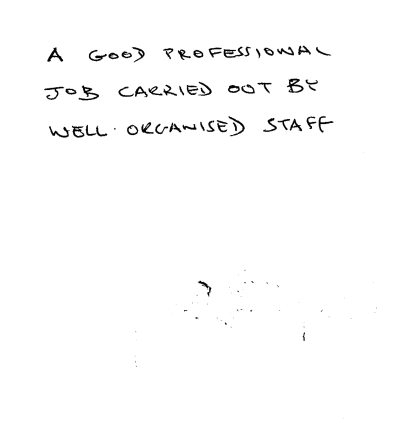 A GOOD PROFESSIONAL
JOB CARRIED OUT BY
WELL ORGANISED STAFF